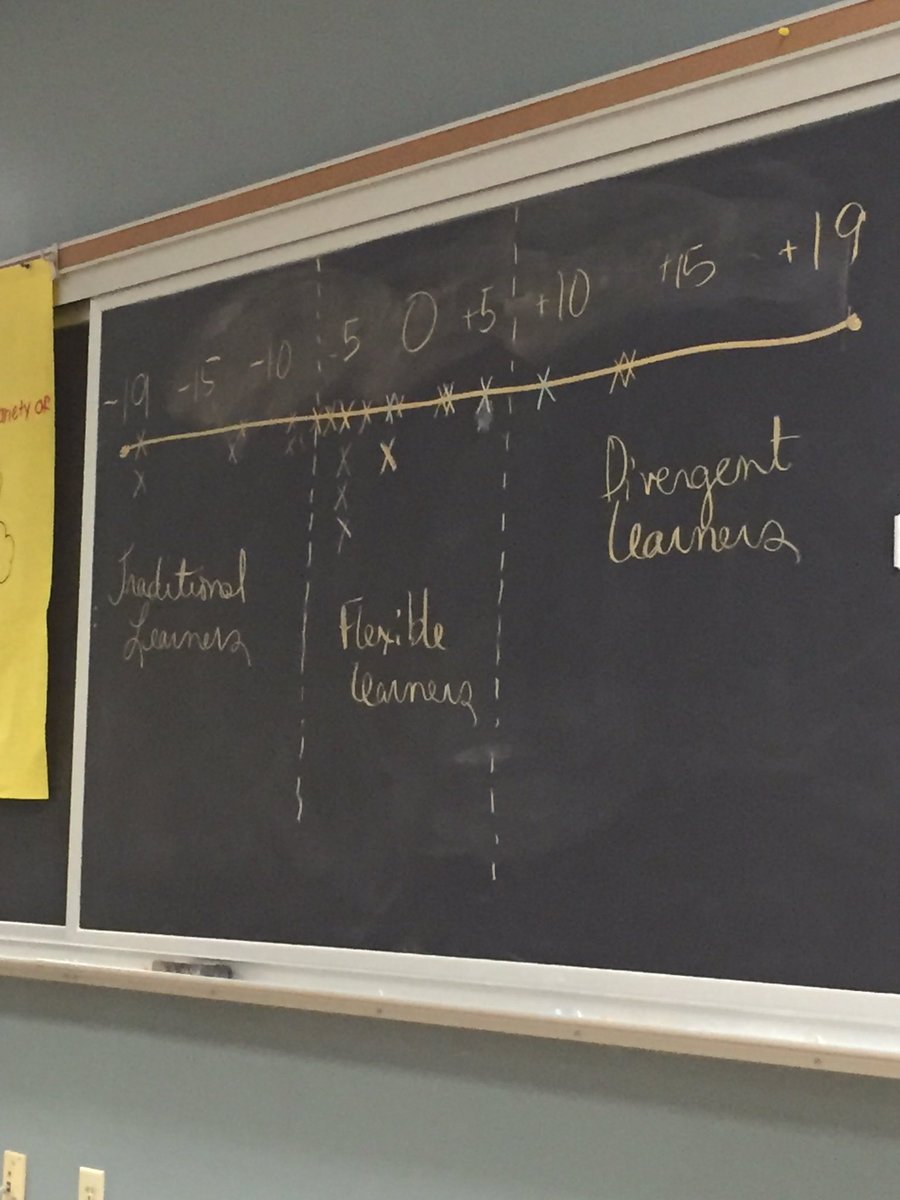 -19 -15 -10 -5 0 +5 +10 +15 +19
Divergent
Learners
Traditional
Learners
Flexible
Learners